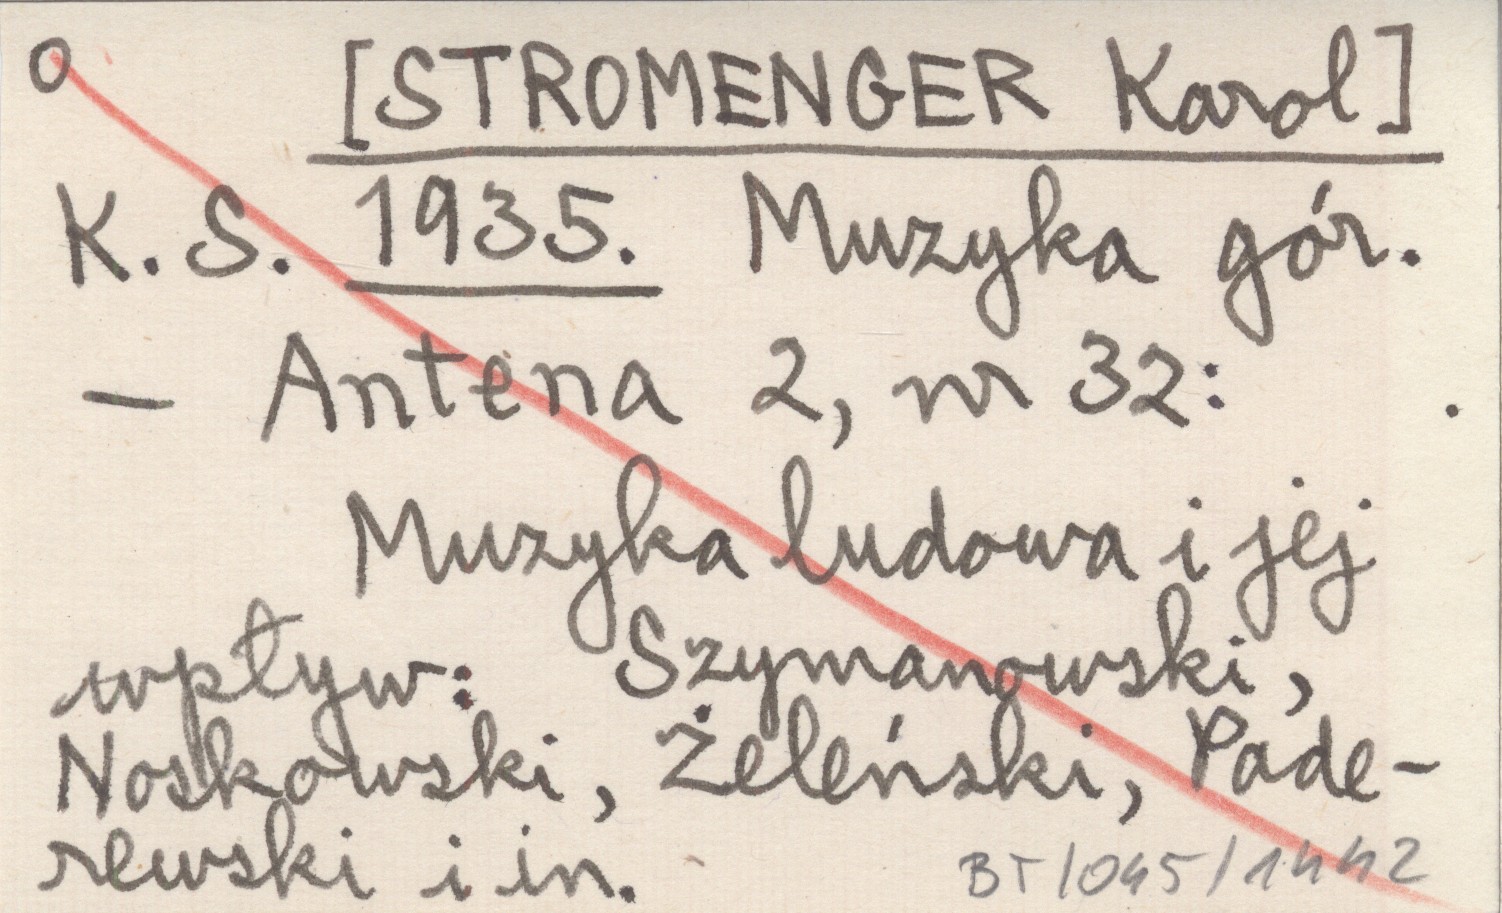 o [STROMENGER Karol]
K. S. 1935. Muzyka gór.
— Antena 2, nr 32:
Muzyka ludowa i jej
wpływ: Szymanowski,
Noskowski, Żeleński, Pade-
rewski i in.
BT/045/1442